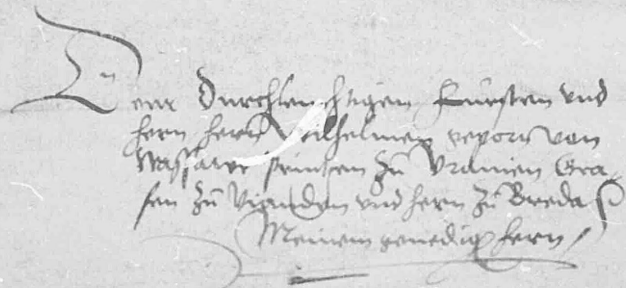 Dem Durchleuchtigen Fursten und
hern hern Wilhelmen von
Nassawe printzen zu Uranien Gra-
fen zu Vianden und hern zu Breda
Meinem genedigen hern